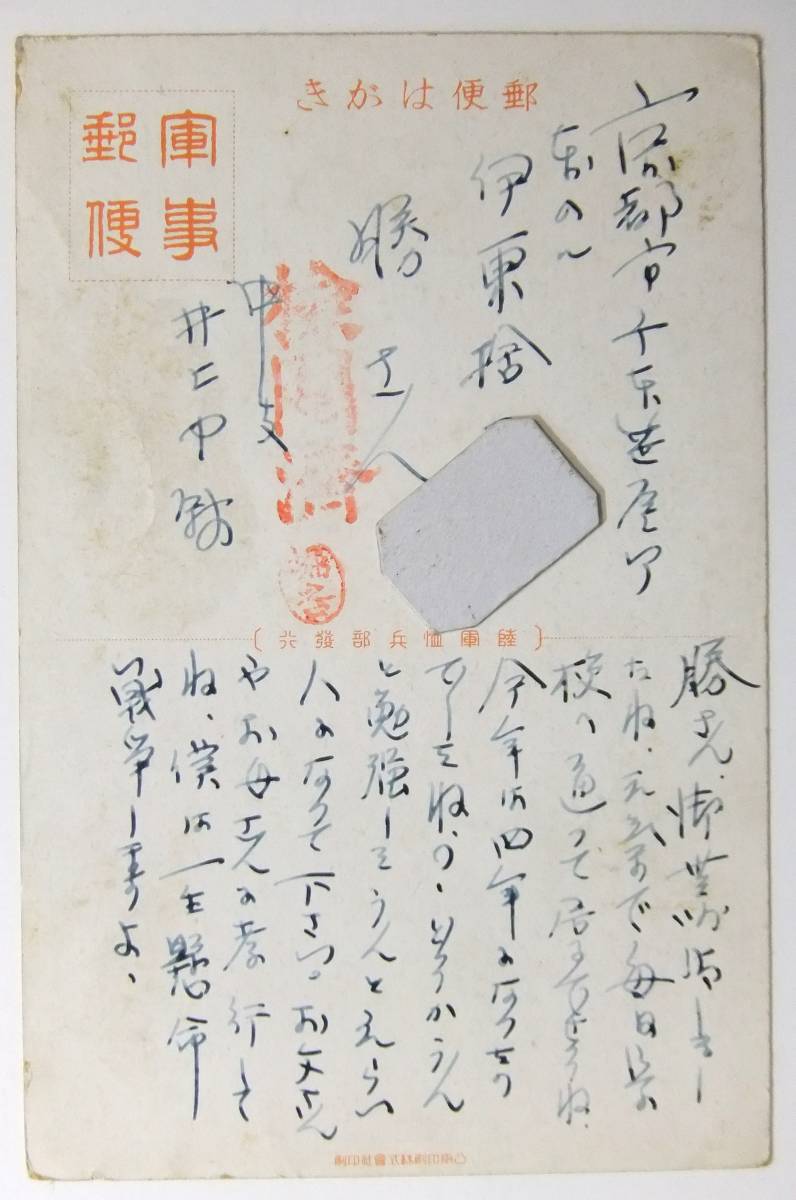 郵便はがき
軍事
郵便
京都市千本笹屋町
伊東捨
勝さん
検閲済
中支
陸軍恤兵部發行
勝さん、御無沙汰しまし
たね、元気で毎日学
校へ通つて居るでせうね、
今年は四年になつた
でせうね、
と勉強してうんとえらい
人になつて下さい。お父さん
やお母さんに孝行して
ね、僕は一生懸命
戦争しますよ、